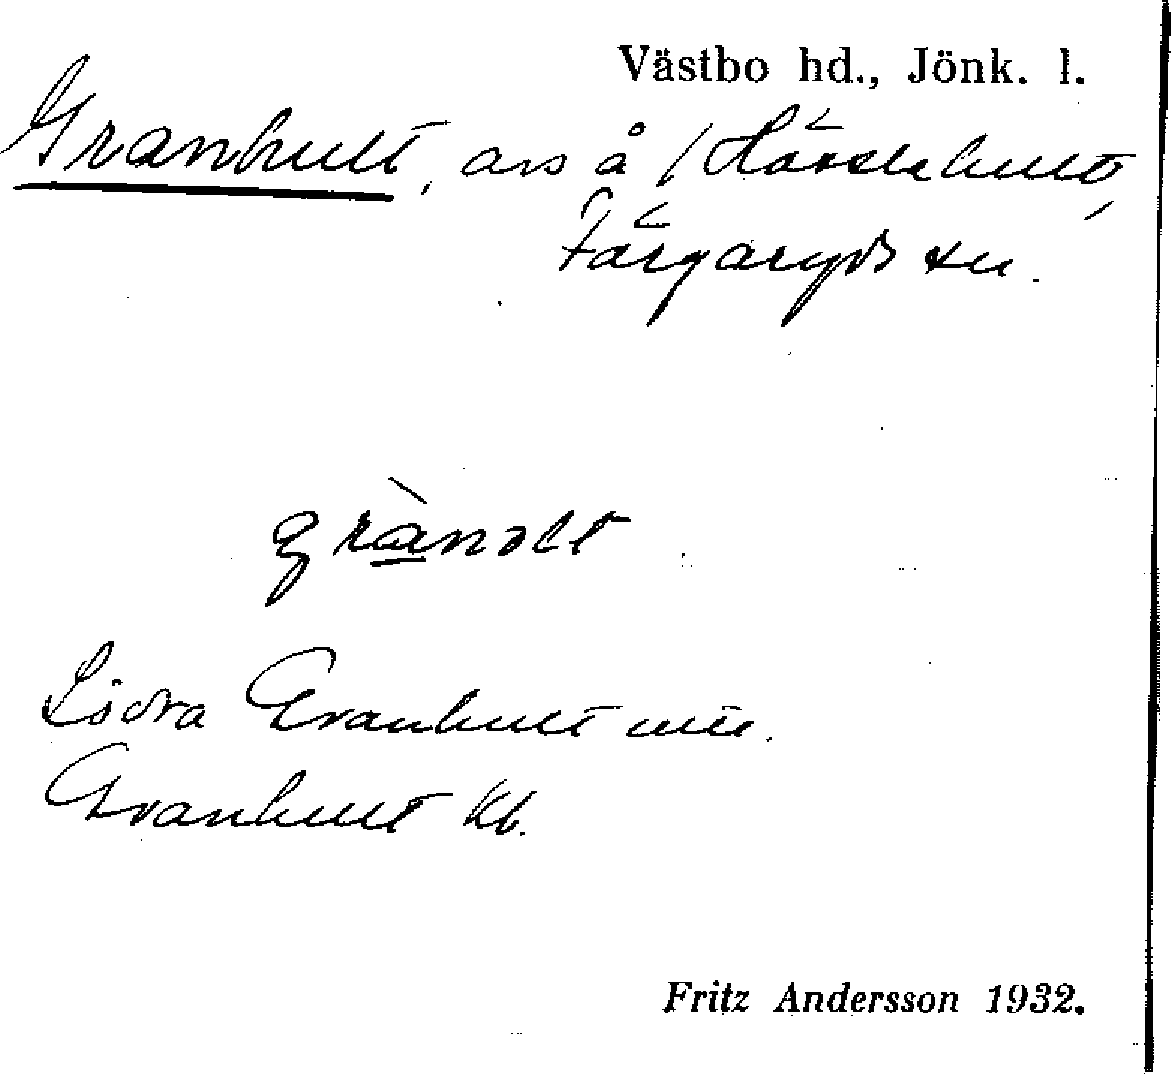 Västbo hd., Jönk. l.
Granhult, avs å Hästhult,
Färgaryds sn.
grànɔlt
Södra Granhult mtr.
Granhult kb.
Fritz Andersson 1932.